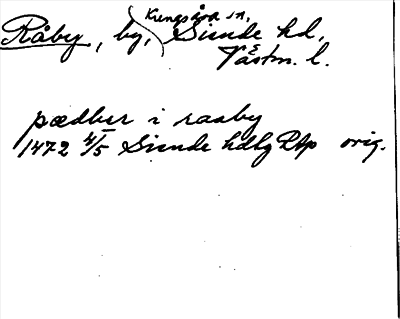 Råby, by, Kungsåra sn, Snevde hd,
Västm. l.
pædher i raaby
1472 4/5 Siende hdbg RAp orig.